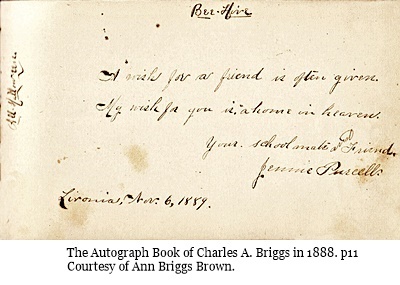 Bee-Hive
A wish for a friend is often given.
My wish for you is, a home in heaven.
Your schoolmate & Friend,
Jennie Purcell.
Livonia, Nov. 6, 1889.
The Autograph Book of Charles A. Briggs in 1888. p11
Courtesy of Ann Briggs Brown.